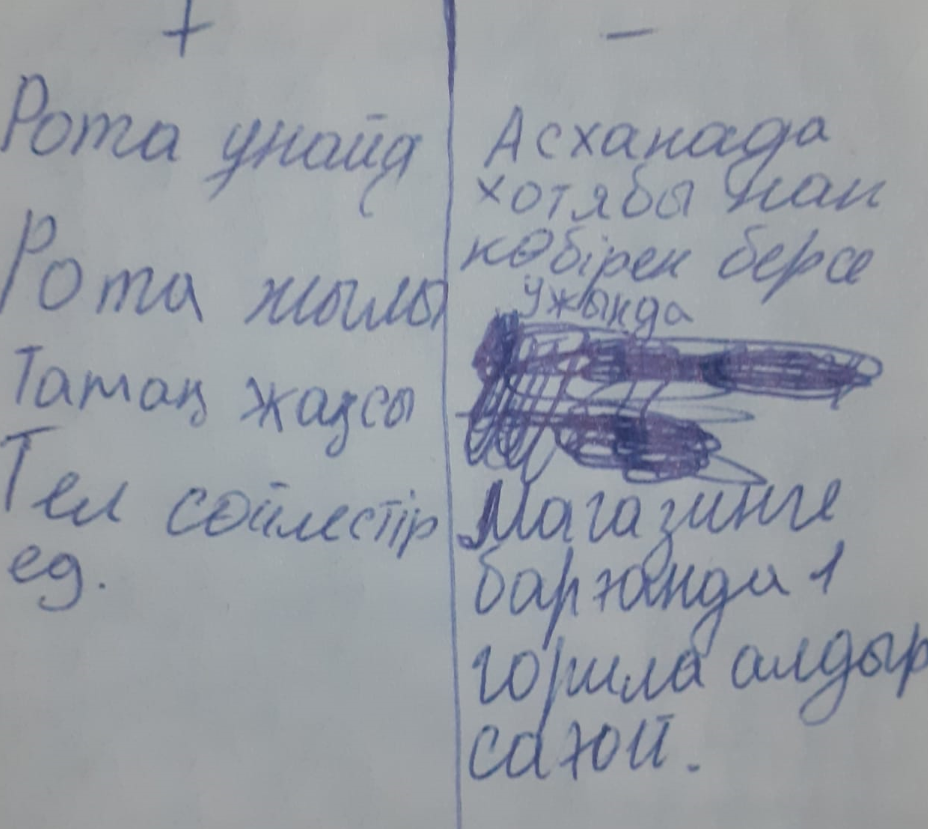 +
Рота унайд
Рота жылы
Тамақ жақсы
Тел сөйлестір
ед.
–
Асханада
хотябы нан
көбірек берсе
Ужында
Магазинге
барғанда 1
горила алдыр
сағой.